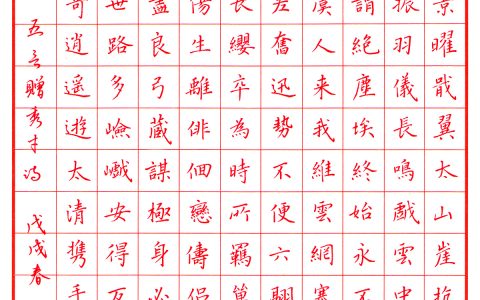 景曜戢翼太山崖抗
振羽儀長鳴戲雲中
謂絕塵埃終始永不
虞人来我維雲網塞
差奮迅勢不便六翮
長纓卒為時所羈單
傷生離俳佪戀儔侶
盡良弓藏謀極身必
世路多嶮巇安得反
奇逍遥遊太清携手
五言赠秀才诗 戊戌春